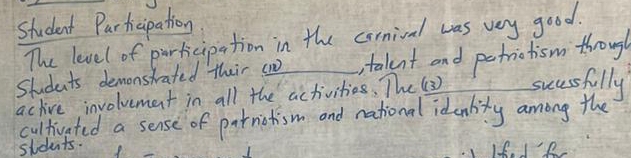 Student Participation
The level of participation in the carnival was very good.
Students demonstrated their (12) ______, talent and patriotism through
active involvement in all the activities. The (13) ______ sucessfully
cultivated a sense of patriotism and national identity among the
students.